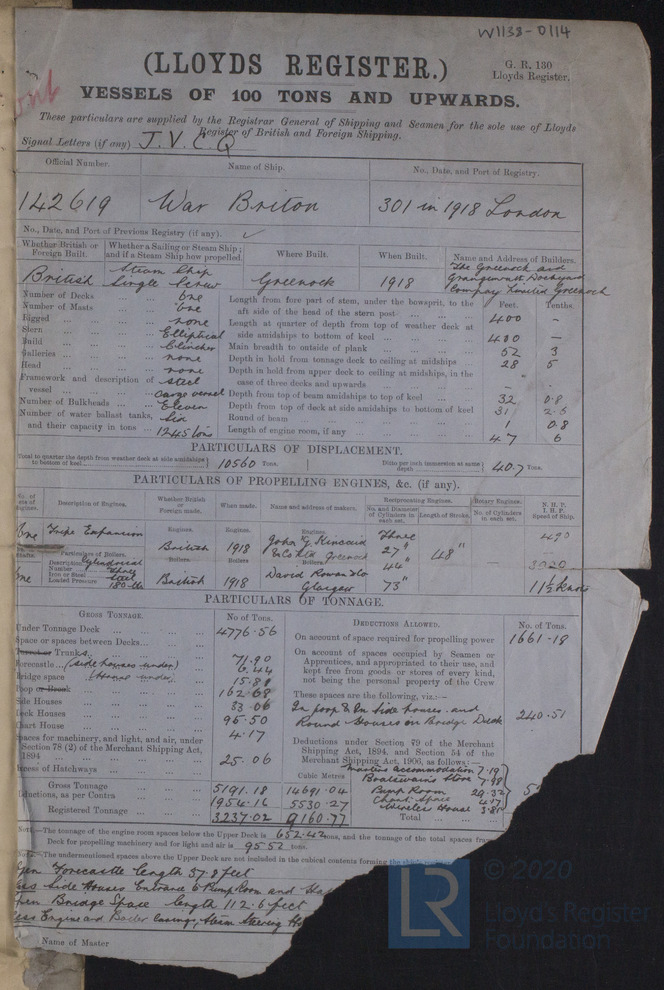 W1133-0114
(LLOYDS REGISTER.)
G. R. 130
Lloyds Register.
VESSELS OF 100 TONS AND UPWARDS.
These particulars are supplied by the Registrar General of Shipping and Seamen for the sole use of Lloyds
Register of British and Foreign Shipping.
Signal Letters (if any) J. V. C. Q
Official Number. Name of Ship. No., Date, and Port of Registry.
142619 War Briton 301 in 1918 London
No., Date, and Port of Previous Registry (if any).
Whether British or Foreign Built. Whether a Sailing or Steam Ship; and if a Steam Ship how propelled. Where Built. When Built. Name and Address of Builders.
British Steam Ship Single Screw Greenock 1918 The Greenock and Grangemouth Dockyard Company Limited Greenock
Number of Decks One
Number of Masts One
Rigged none
Stern Elliptical
Build Clincher
Galleries none
Head none
Framework and description of vessel Steel Cargo vessel
Number of Bulkheads Eleven
Number of water ballast tanks, and their capacity in tons Six 1245 tons
Feet. Tenths.
Length from fore part of stem, under the bowsprit, to the aft side of the head of the stern post 400 –
Length at quarter of depth from top of weather deck at side amidships to bottom of keel 400 –
Main breadth to outside of plank 52 3
Depth in hold from tonnage deck to ceiling at midships 28 5
Depth in hold from upper deck to ceiling at midships, in the case of three decks and upwards – –
Depth from top of beam amidships to top of keel 32 0.8
Depth from top of deck at side amidships to bottom of keel 31
Round of beam 1 0.8
Length of engine room, if any 47 6
PARTICULARS OF DISPLACEMENT.
Total to quarter the depth from weather deck at side amidships to bottom of keel 10560 Tons. Ditto per inch immersion at same depth 40.7 Tons.
PARTICULARS OF PROPELLING ENGINES, &c. (if any).
No. of sets of Engines. Description of Engines. Whether British or Foreign made. When made. Name and address of makers. Reciprocating Engines. No. and Diameter of Cylinders in each set. Length of Stroke. Rotary Engines. No. of Cylinders in each set. N.H.P. I.H.P. Speed of Ship.
One Triple Expansion Engines. British Engines. 1918 Engines. John G. Kincaid & Co Ltd Greenock Three 27" 44" 73" 48" 490
Particulars of Boilers.
Description Cylindrical
Number Three
Iron or Steel Steel
Loaded Pressure 180 lbs
One Boilers British Boilers 1918 Boilers David Rowan & Co Glasgow 3020
11½ knots
PARTICULARS OF TONNAGE.
GROSS TONNAGE. No of Tons.
Under Tonnage Deck 4776.56
Space or spaces between Decks
Turret or Trunks
Forecastle (Side houses under) 71.90
6.44
Bridge space (House under) 15.81
Poop or Break 162.68
Side Houses 33.06
Deck Houses 95.50
Chart House 4.17
Spaces for machinery, and light, and air, under
Section 78 (2) of the Merchant Shipping Act,
1894 25.06
Excess of Hatchways
Gross Tonnage 5191.18 14691.04
Deductions, as per Contra 1954.16 5530.27
Registered Tonnage 3237.02 9160.77
Cubic Metres
DEDUCTIONS ALLOWED. No. of Tons.
On account of space required for propelling power 1661.18
On account of spaces occupied by Seamen or
Apprentices, and appropriated to their use, and
kept free from goods or stores of every kind,
not being the personal property of the Crew
These spaces are the following, viz.:—
In poop & In Side houses and
Round Houses on Bridge Deck 240.51
Deductions under Section 79 of the Merchant
Shipping Act, 1894, and Section 54 of the
Merchant Shipping Act, 1906, as follows:—
Masters accommodation 7.19
Boatswains Store 7.98
Pump Room 29.32
Chart Space 4.17
Wireless House 3.81
Total
NOTE.—The tonnage of the engine room spaces below the Upper Deck is 652.42 tons, and the tonnage of the total spaces
Deck for propelling machinery and for light and air is 95.52 tons.
Note.—The undermentioned spaces above the Upper Deck are not included in the cubical contents forming the
Open Forecastle length 37.8 feet
Less Side Houses Entrance to Pump Room and
Open Bridge Space length 112.6 feet
Less Engine and Boiler Casings, Steam Steering
Name of Master
© 2020
LR
Lloyd's Register
Foundation